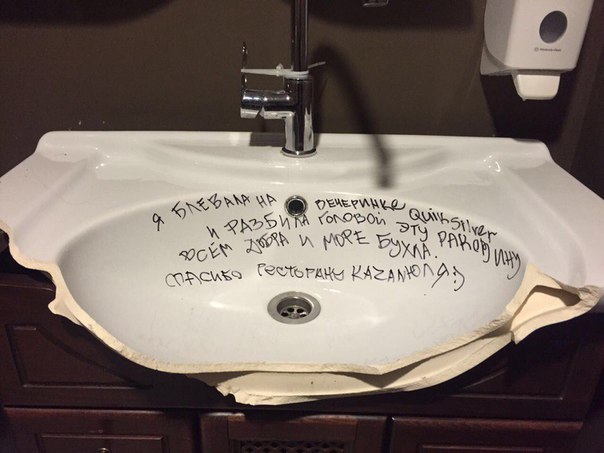 Я БЛЕВАЛА НА ВЕЧЕРИНКЕ QUIKSILVER
И РАЗБИЛА ГОЛОВОЙ ЭТУ РАКОВИНУ
ВСЕМ ДОБРА И МОРЕ БУХЛА.
СПАСИБО РЕСТОРАНУ